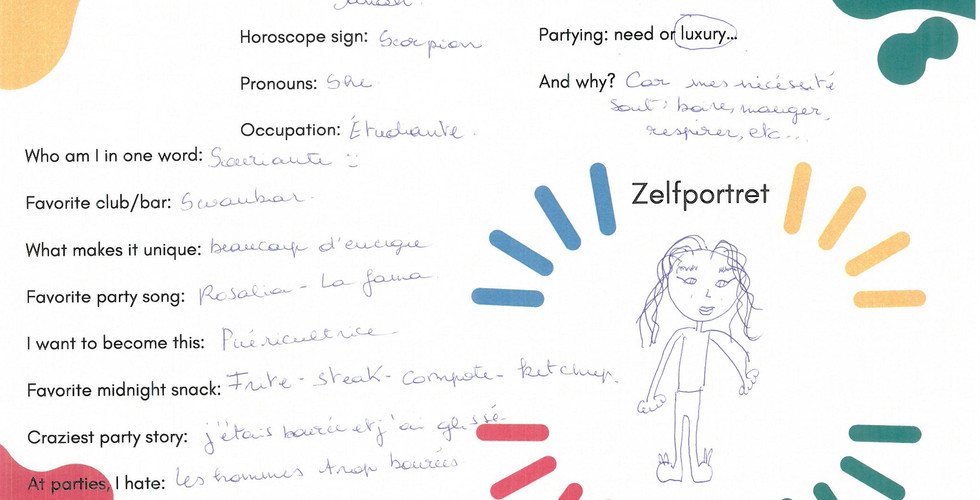 Horoscope sign: Scorpion
Pronouns: She
Occupation: Étudiante.
Who am I in one word: Souriante :)
Favorite club/bar: Swanbar.
What makes it unique: beaucoup d'énergie
Favorite party song: Rosalia - La fama
I want to become this: Puéricultrice
Favorite midnight snack: Frite - steak - compote - ketchup.
Craziest party story: j'étais bourée et j'ai glissé
At parties, I hate: les hommes trop bourées.
Partying: need or luxury...
And why? Car mes nécéssité
sont: boire, manger,
respirer, etc...
Zelfportret